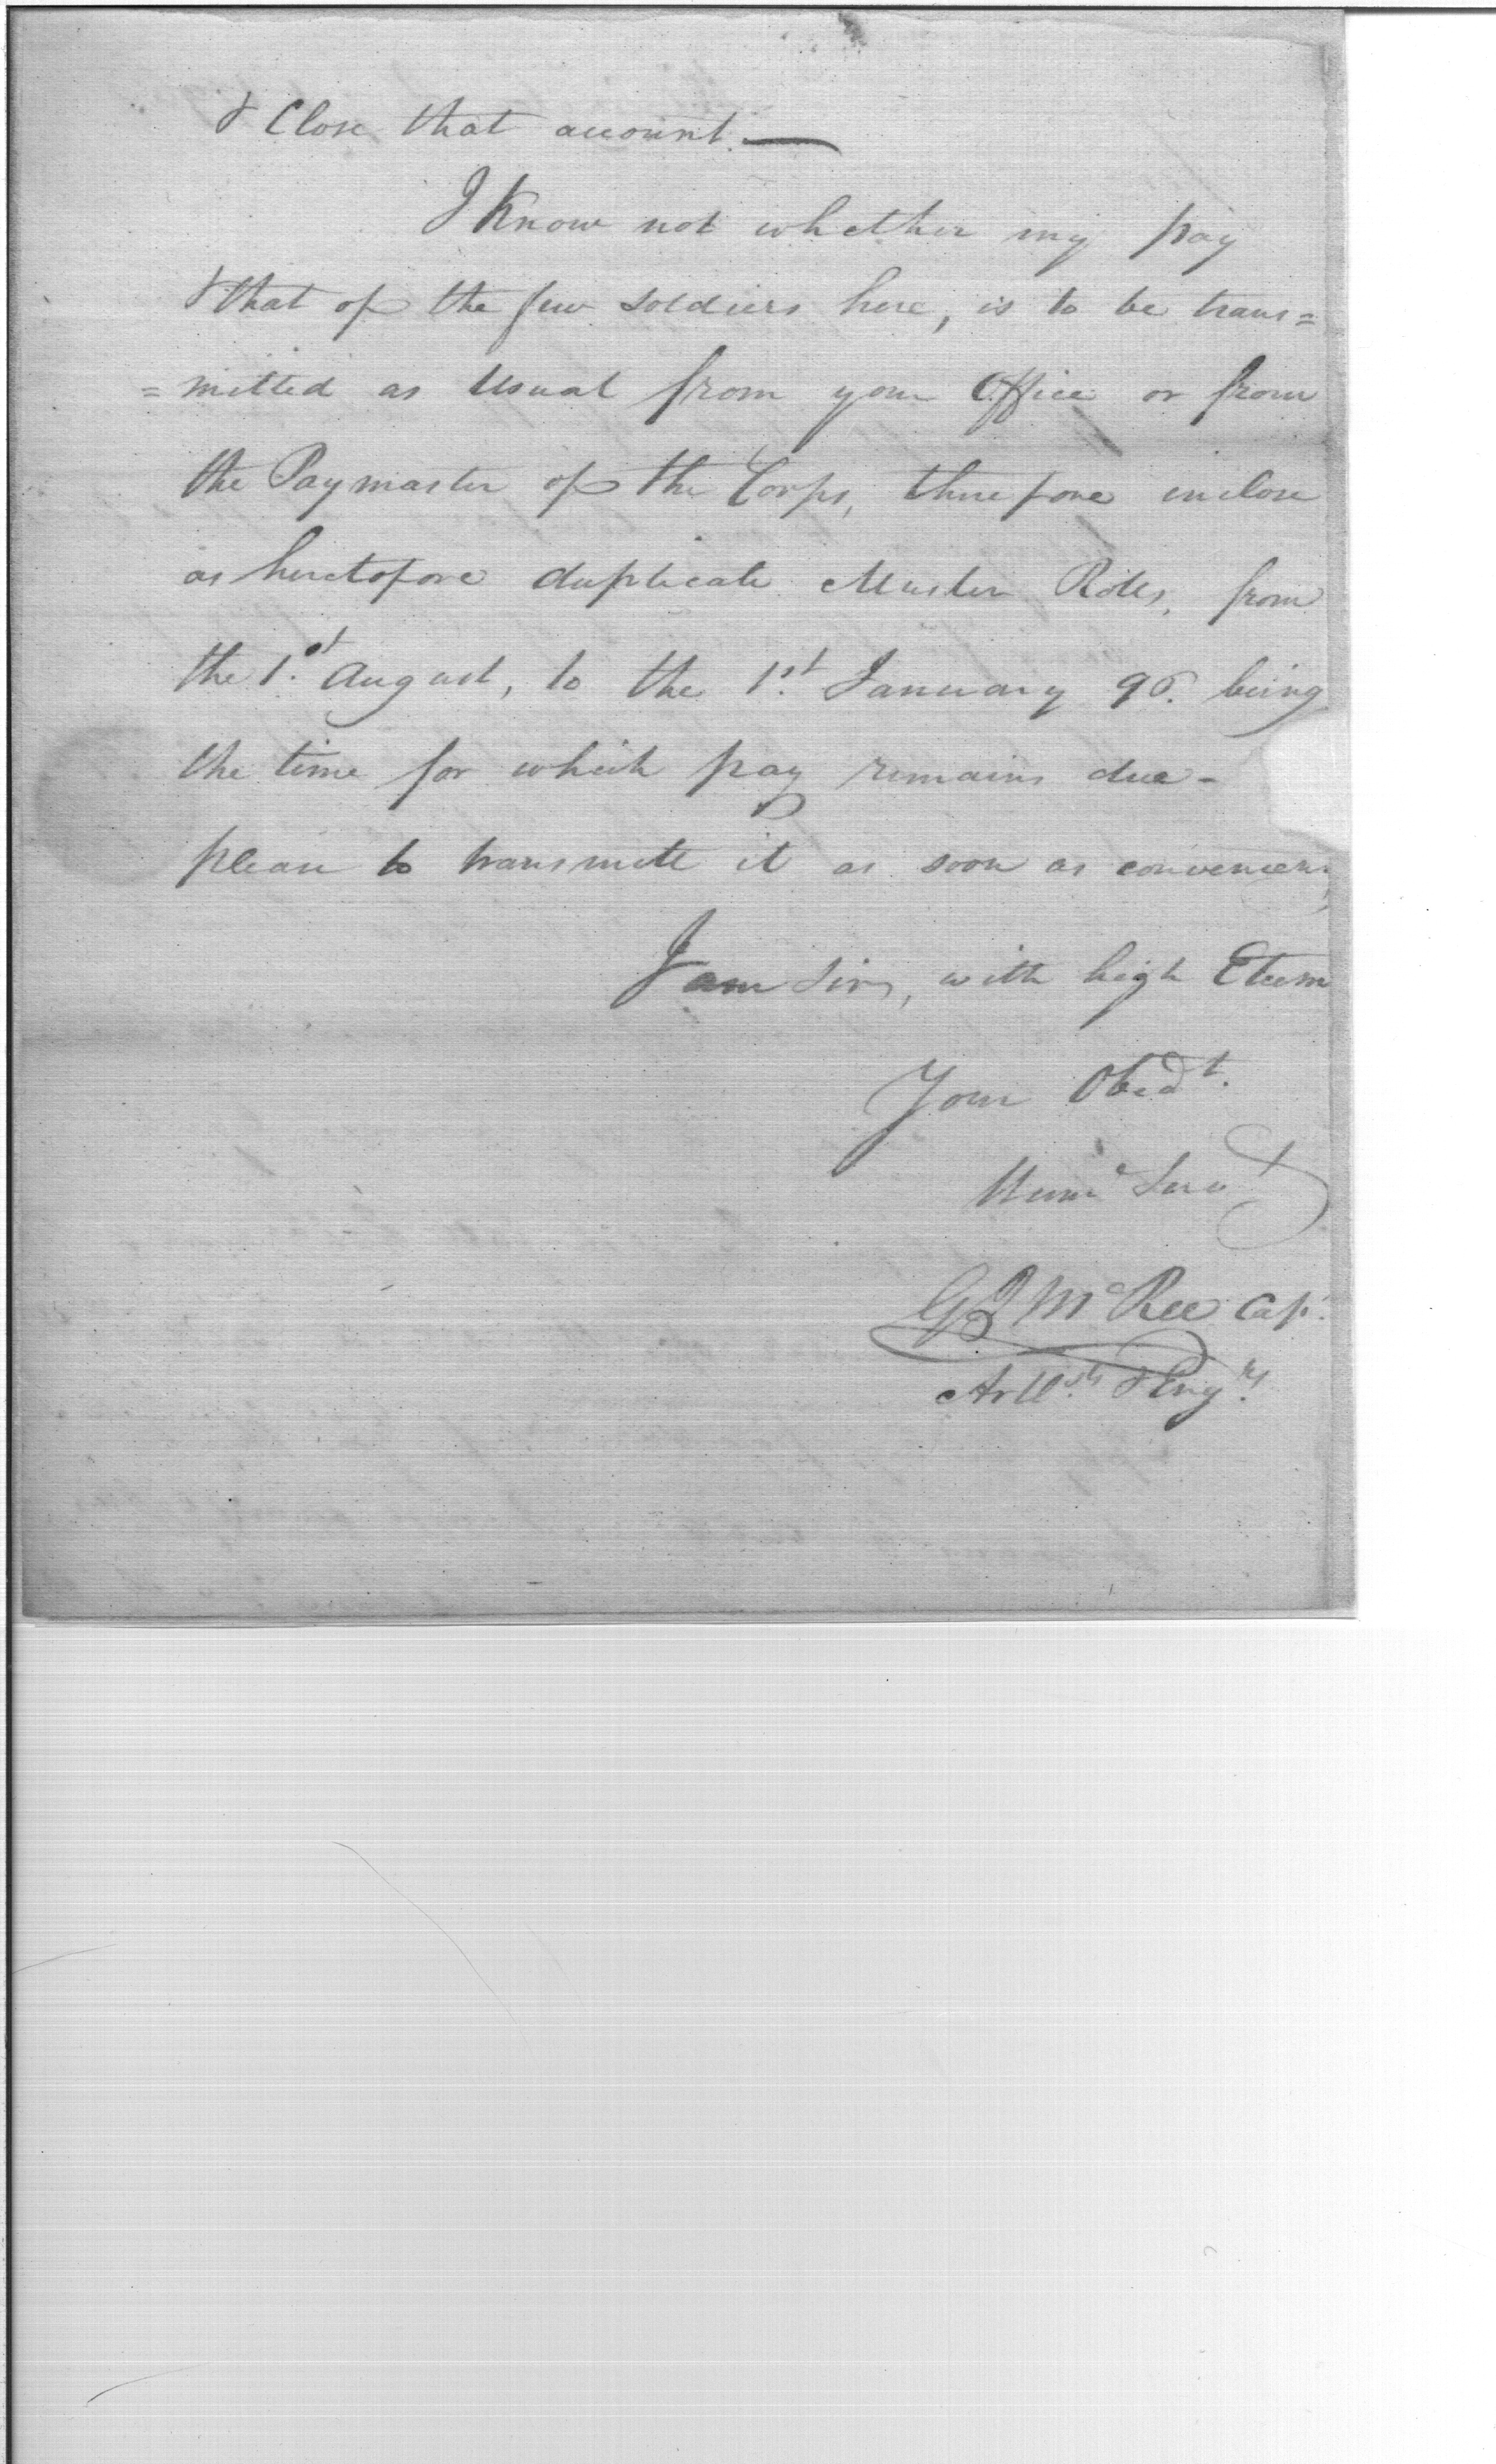 & Close that account. —
I Know not whether my pay
& that of the few soldiers here, is to be trans=
=mitted as Usual from your Office or from
the Paymaster of the Corps, therefore inclose
as heretofore duplicate Muster Rolls, from
the 1st August, to the 1st January 96. being
the time for which pay remains due -
please to transmitt it as soon as convenien
I am Sir, with high Esteem
Your Obedt.
Humb Servt
G J McRee Cap.
Artllsts & Engrs.